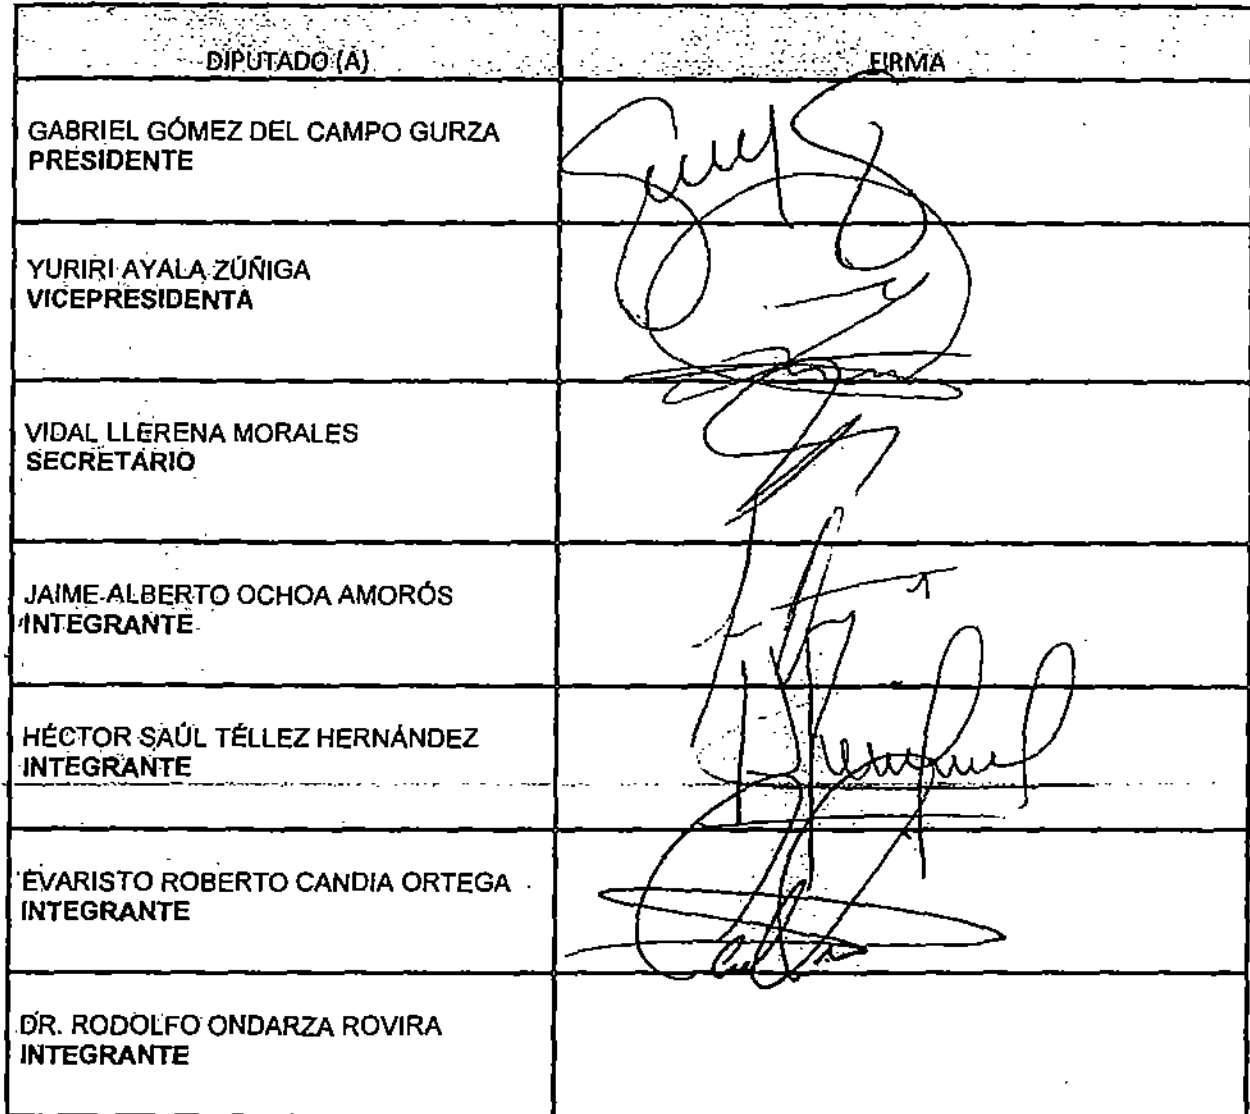 DIPUTADO (A) FIRMA
GABRIEL GÓMEZ DEL CAMPO GURZA
PRESIDENTE
YURIRI AYALA ZÚÑIGA
VICEPRESIDENTA
VIDAL LLERENA MORALES
SECRETARIO
JAIME ALBERTO OCHOA AMORÓS
INTEGRANTE
HÉCTOR SAÚL TÉLLEZ HERNÁNDEZ
INTEGRANTE
EVARISTO ROBERTO CANDIA ORTEGA
INTEGRANTE
DR. RODOLFO ONDARZA ROVIRA
INTEGRANTE